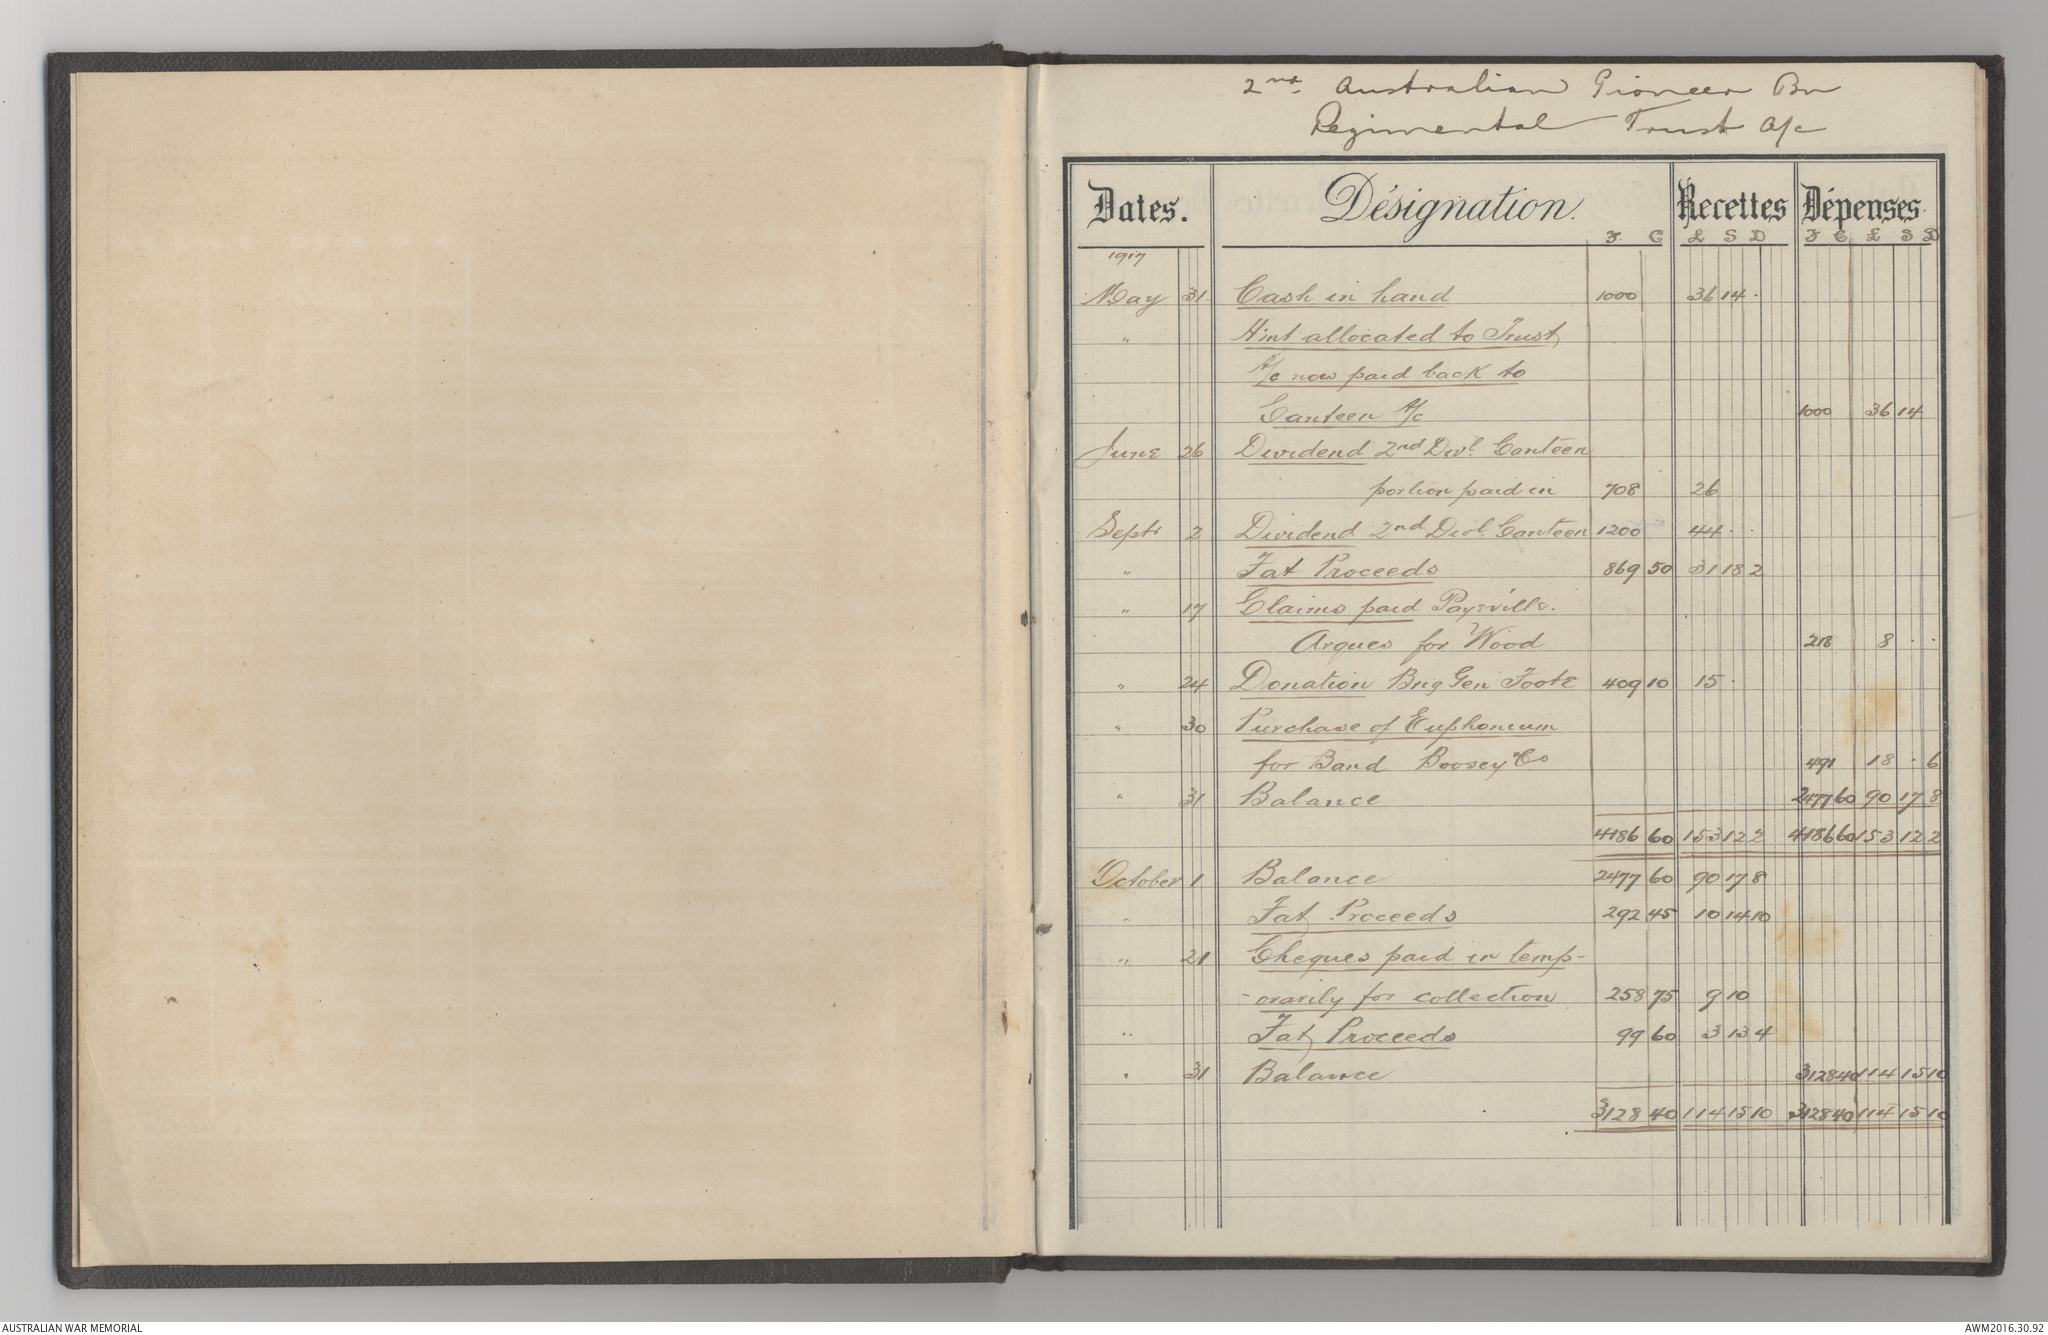 2nd Australian Pioneer Bn
Regimental Trust A/c
Dates. Désignation. Recettes Dépenses.
F. C £ S D F C £ S D
1917
May 31 Cash in hand 1000 36 14 .
" Amt allocated to Trust
A/c now paid back to
Canteen A/c 1000 36 14
June 26 Dividend 2nd Divl Canteen
portion paid in 708 26
Septr 2 Dividend 2nd Divl Canteen 1200 44 . .
" Fat Proceeds 869 50 31 18 2
" 17 Claims paid
Arques for Wood 218 8 . .
" 24 Donation Brig Gen Foote 409 10 15 .
" 30 Purchase of Euphonium
for Band Boosey & Co 491 18 . 6
" 31 Balance 2477 60 90 17 8
4186 60 153 12 2 4186 60 153 12 2
October 1 Balance 2477 60 90 17 8
" Fat Proceeds 292 45 10 14 10
" 21 Cheques paid in temp-
-orarily for collection 258 75 9 10
" Fat Proceeds 99 60 3 13 4
" 31 Balance 3128 40 114 15 10
3128 40 114 15 10 3128 40 114 15 10
AUSTRALIAN WAR MEMORIAL AWM2016.30.92